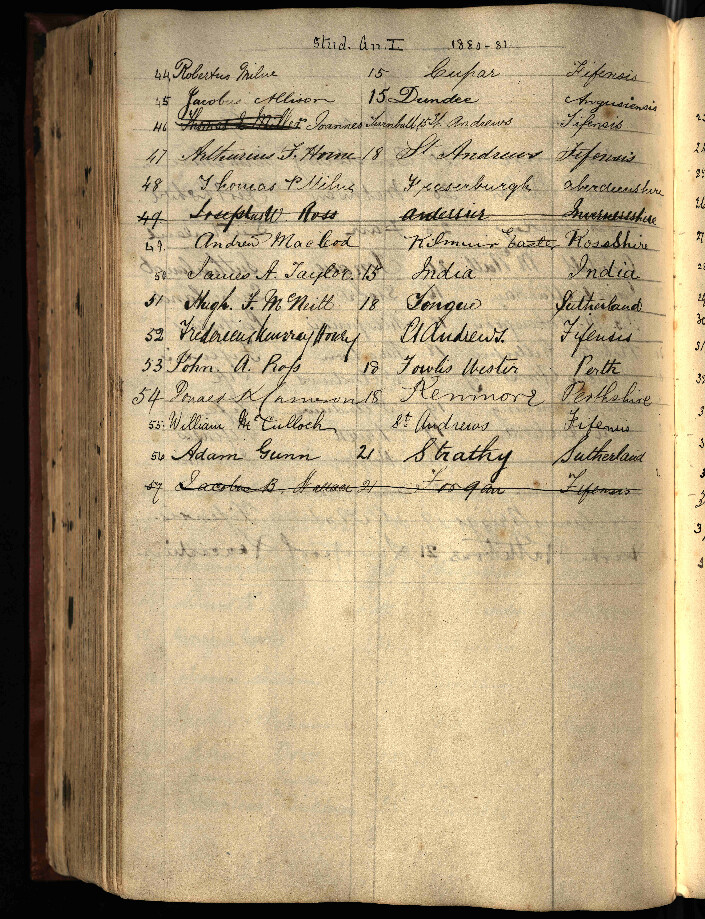 Stud. An. I 1880-81
44 Robertus Milne 15 Cupar Fifensis
45 Jacobus Allison 15 Dundee Angusiensis
46 Thomas Joannes Turnbull 15 St. Andrews Fifensis
47 Arthurius F. Home 18 St Andrews Fifensis
48 Thomas P Milne Fraserburgh aberdeenshire
49 Joseph W Ross ardersier Invernesshire
49. Andrew Macleod Kilmuir Easter Rossshire
50 James A. Taylor. 15 India India
51 Hugh F. McNeill 18 Tongue Sutherland
52 Murray St Andrews. Fifensis
53 John A. Ross 18 Fowlis Wester Perth
54 Donald Cameron 18 Kenmore Perthshire
55. William McCulloch St Andrews Fifensis
56 Adam Gunn 21 Strathy Sutherland
57 Jacobus B. Wallace 21 Forgan Fifensis